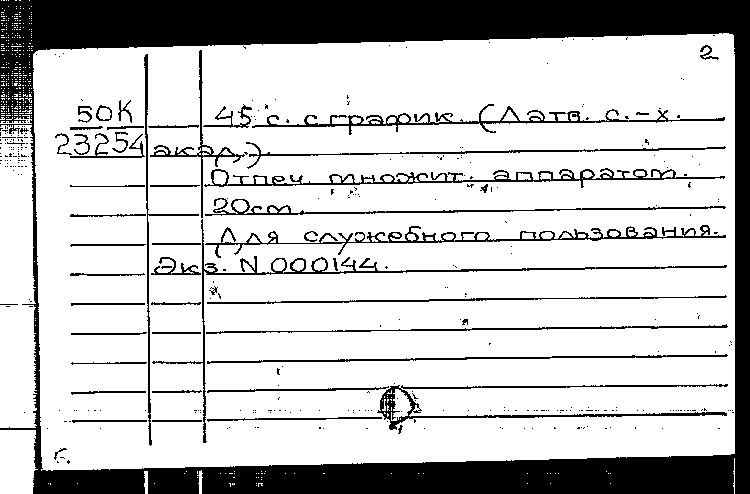 2
50К 45 с. с график. (Латв. с.-х.
23254 акад.).
Отпеч. множит. аппаратом.
20см.
Для служебного пользования.
Экз. N 000144.
Б.